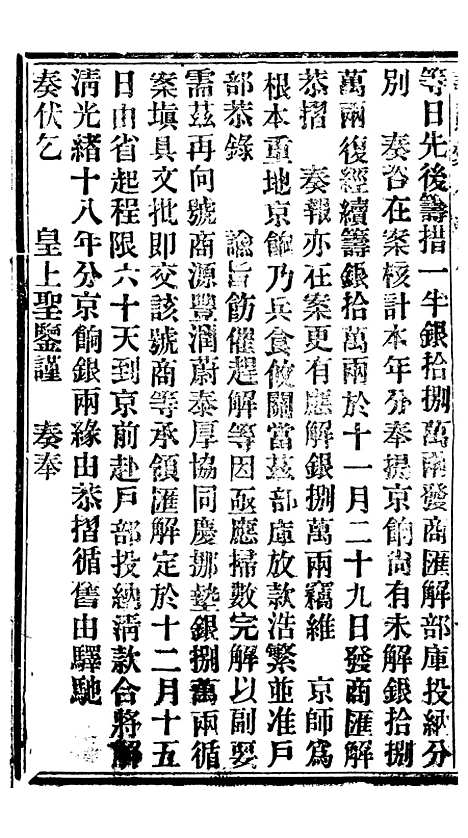 等日先後籌措一半銀拾捌萬兩發商匯解部庫投納分
別　奏咨在案核計本年分奉提京餉尙有未解銀拾捌
萬兩復經續籌銀拾萬兩於十一月二十九日發商匯解
恭摺　奏報亦在案更有應解銀捌萬兩竊維　京師爲
根本重地京餉乃兵食攸關當茲部庫放款浩繁並准戶
部恭錄　諭旨飭催趕解等因亟應掃數完解以副要
需茲再向號商源豐潤蔚泰厚協同慶挪墊銀捌萬兩循
案塡具文批卽交該號商等承領匯解定於十二月十五
日由省起程限六十天到京前赴戶部投納淸款合將解
淸光緖十八年分京餉銀兩緣由恭摺循舊由驛馳
奏伏乞　皇上聖鑒謹　奏奉